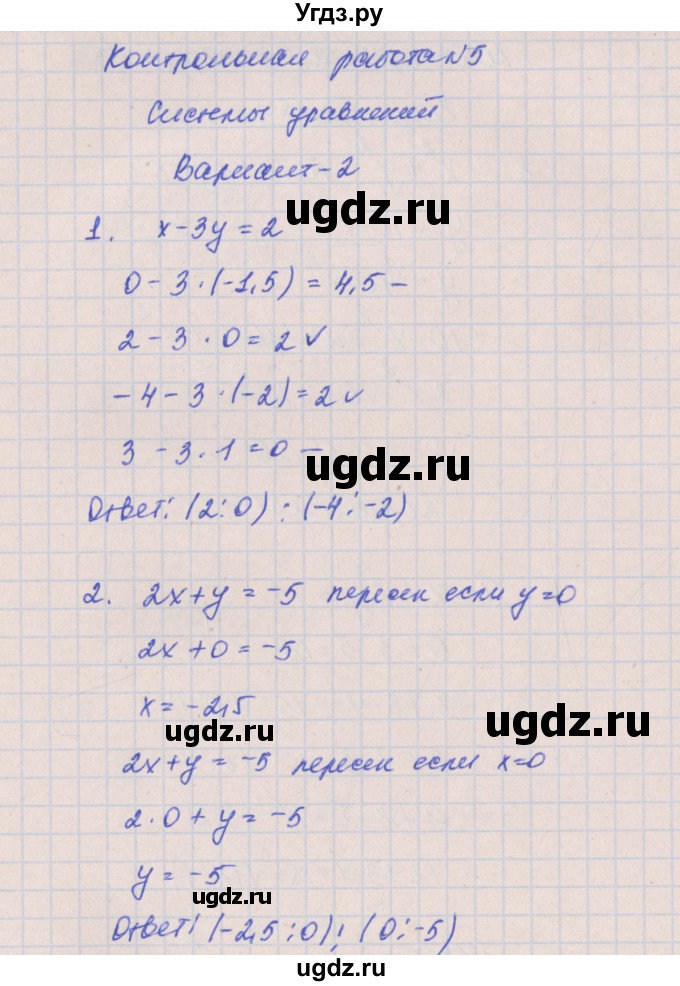 Угдз.ру
Контрольная работа №5
Системы уравнений
Вариант-2
ugdz.ru
1. x-3y=2
0-3·(-1,5)=4,5 -
2-3·0=2 ✓
-4-3·(-2)=2 ✓
ugdz.ru
3-3·1=0 -
Ответ: (2;0); (-4;-2)
2. 2x+y=-5 пересек если y=0
2x+0=-5
x=-2,5
ugdz.ru
ugdz.ru
2x+y=-5 пересек если x=0
2·0+y=-5
y=-5
ugdz.ru
Ответ: (-2,5;0); (0;-5)
ugdz.ru